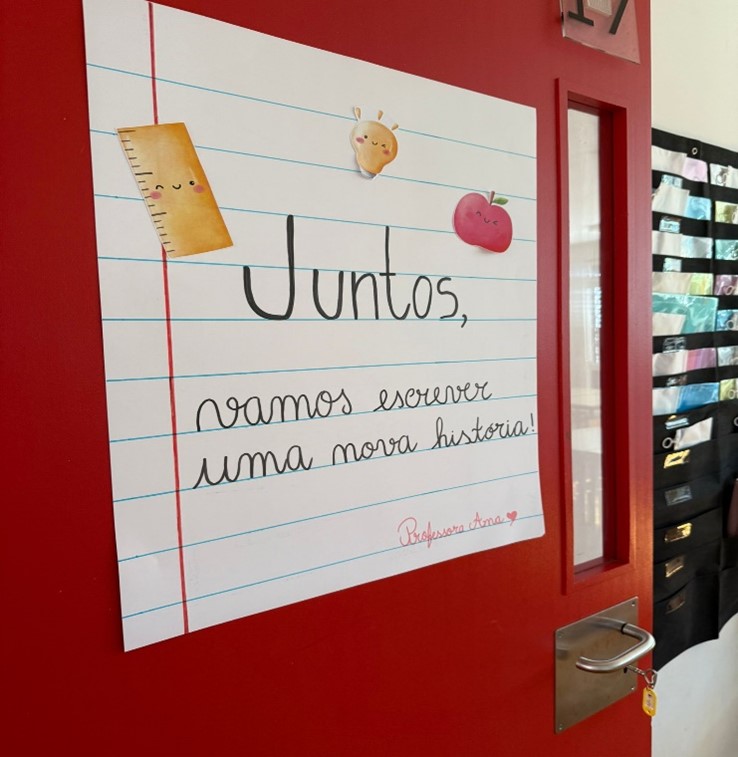 17
Juntos,
vamos escrever
uma nova história!
Professora Ana